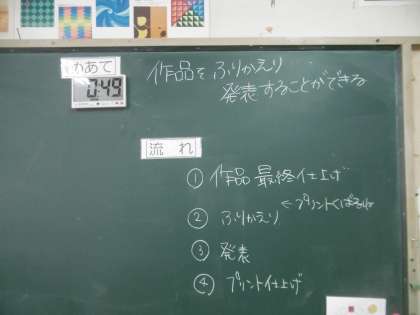 めあて
0:49
作品をふりかえり
発表することができる
流れ
① 作品最終仕上げ
② ふりかえり ←プリントくばるね
③ 発表
④ プリント仕上げ